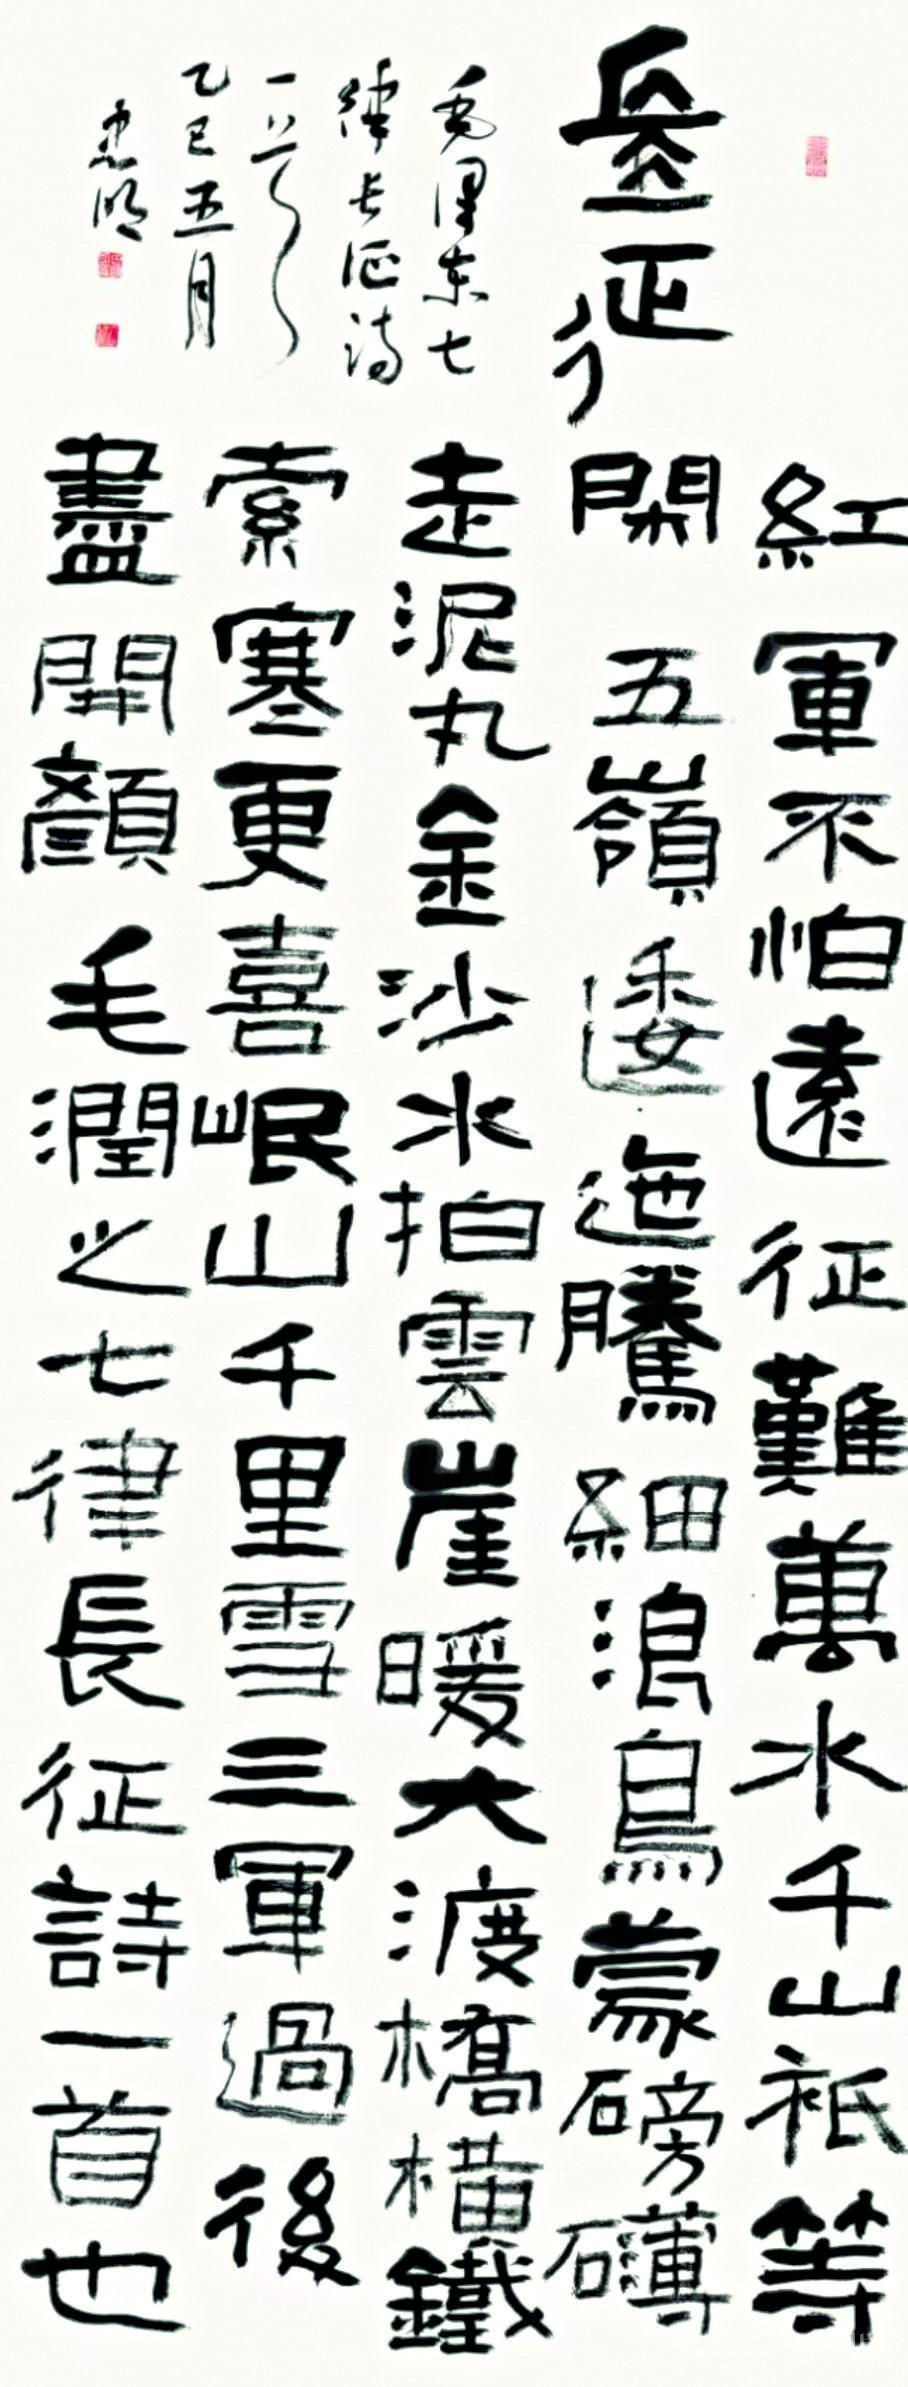 長征
紅軍不怕遠征難萬水千山祇等
閑五嶺逶迤騰細浪烏蒙磅礴
走泥丸金沙水拍雲崖暖大渡橋橫鐵
索寒更喜岷山千里雪三軍過後
盡開顏毛潤之七律長征詩一首也
毛澤东七
律长征诗
一首
乙巳五月